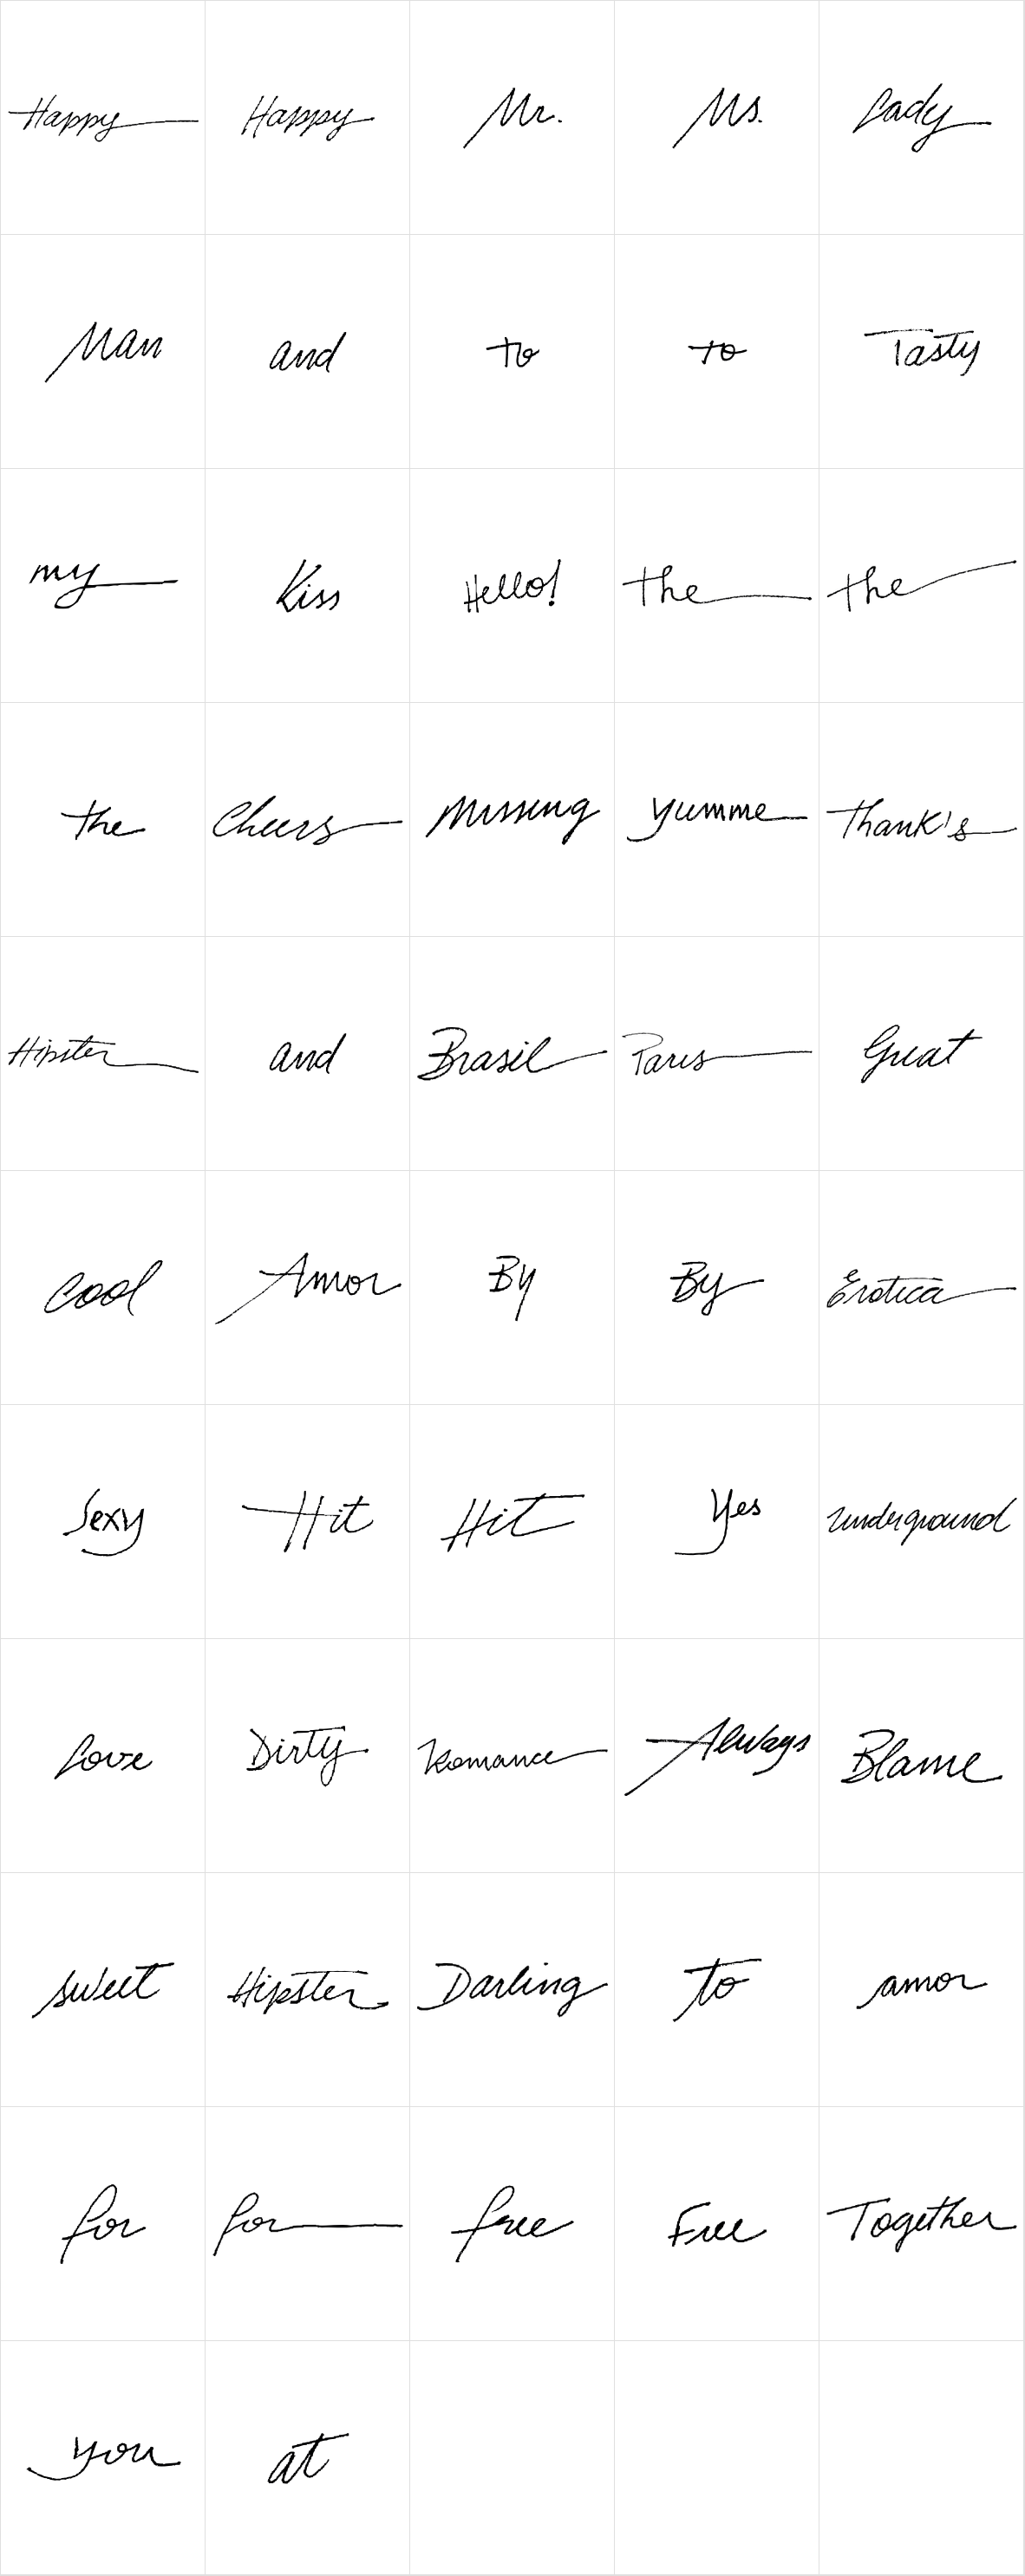 Happy Happy Mr. Ms. Lady
Man and to to Tasty
my Kiss Hello! the the
the Cheers Missing yumme Thank's
Hipster and Brasil Paris Great
Cool Amor By By Erotica
Sexy Hit Hit Yes underground
Love Dirty Romance Always Blame
sweet Hipster Darling to amor
for for free Free Together
you at